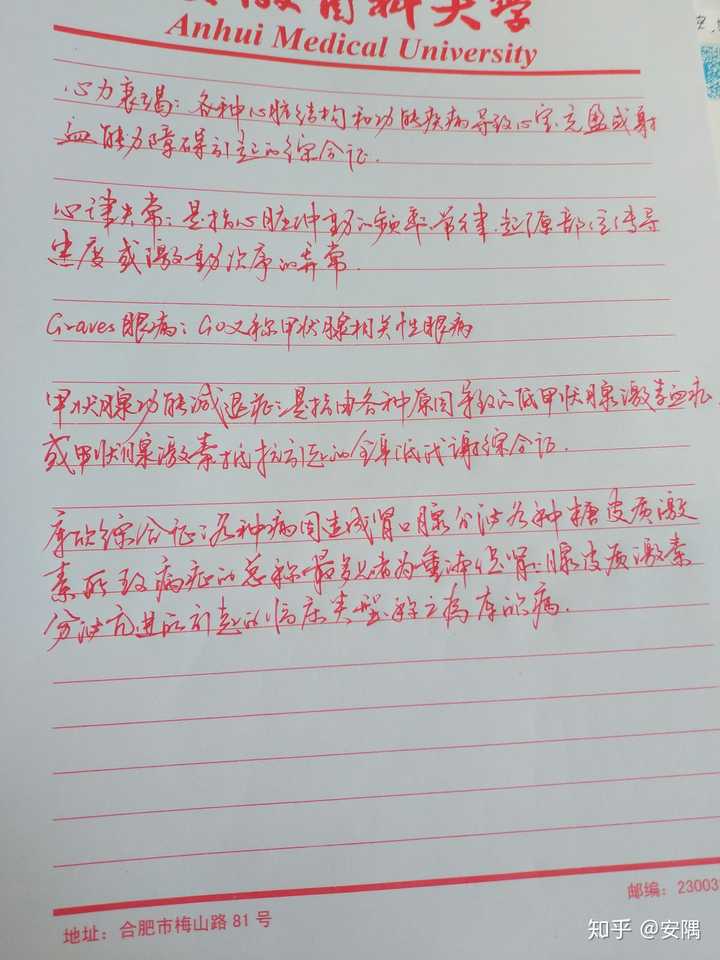 医科大学
Anhui Medical University
心力衰竭：各种心脏结构和功能疾病导致心室充盈或射
血能力障碍引起的综合征.
心律失常：是指心脏冲动的频率.节律.起源部位传导
速度或激动次序的异常.
Graves眼病：GO又称甲状腺相关性眼病
甲状腺功能减退症：是指由各种原因导致的低甲状腺激素血症
或甲状腺激素抵抗引起的全身低代谢综合征.
库欣综合征：各种病因造成肾上腺分泌各种糖皮质激
素所致病症的总称.最多见者为垂体促肾上腺皮质激素
分泌亢进所引起的临床类型.称之为库欣病.
地址：合肥市梅山路 81 号
邮编：23003
知乎 @安隅